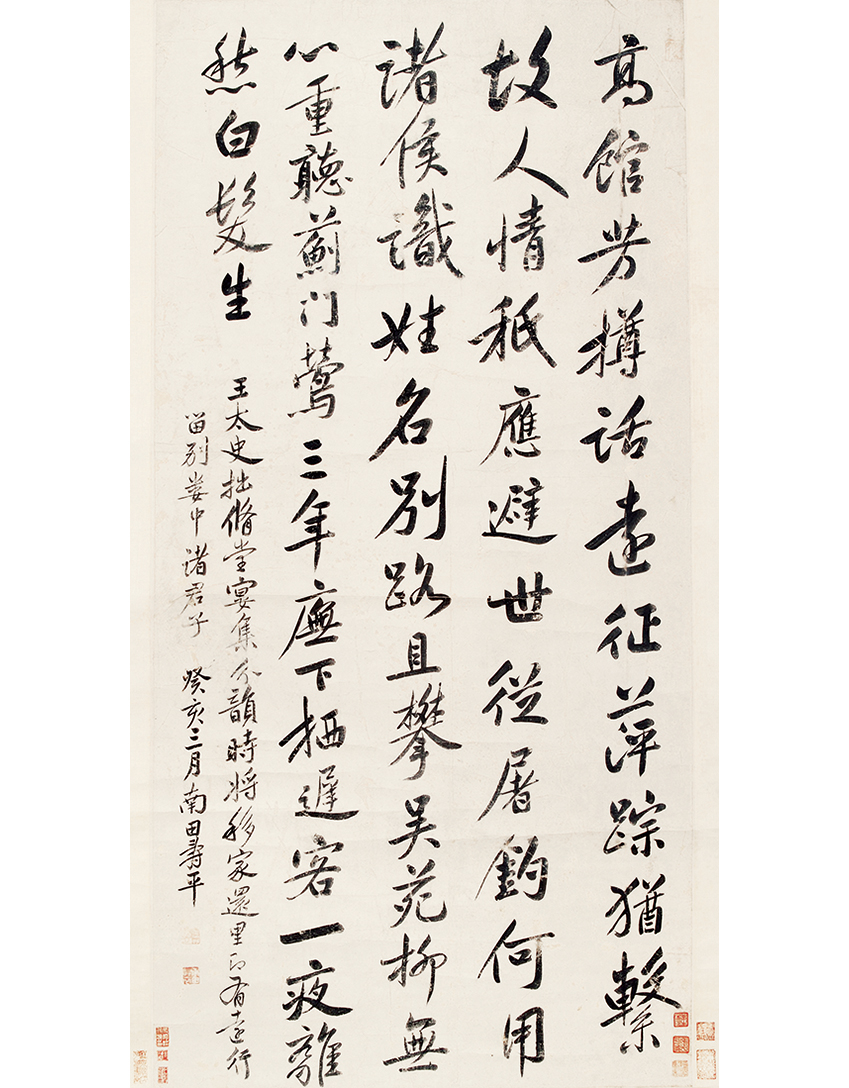 高館芳樽話遠征萍踪猶繫
故人情秖應避世從屠釣何用
諸侯識姓名別路且攀吳苑柳無
心重聽薊门鶯三年廡下栖遲客一夜離
愁白髮生
王太史拙脩堂宴集分韻時將移家還里即有遠行
留別婁中諸君子 癸亥三月南田壽平